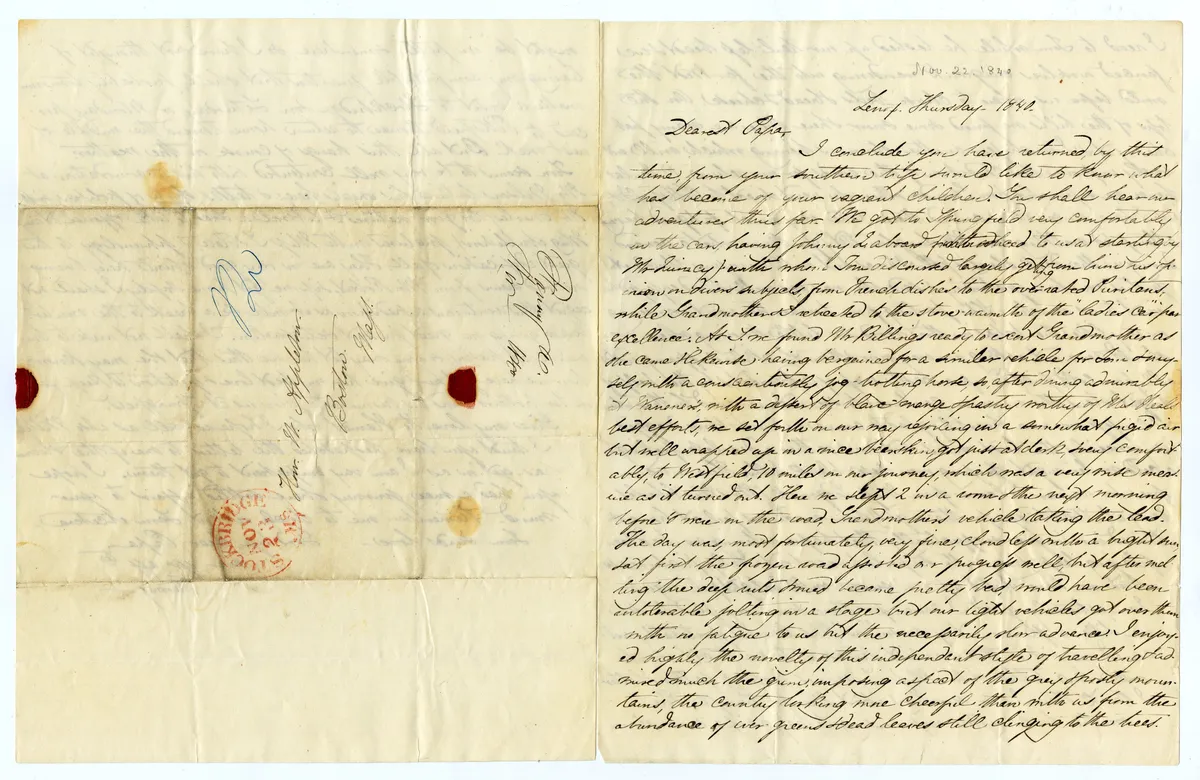 Fanny to
Hon. N. Appleton.
Boston.
Mass.
STOCKBRIDGE
NOV
23
MS
Nov. 22. 1840
Lenox. Thursday 1840.
Dearest Papa,
I conclude you have returned by this
time, from your southern trip & would like to know what
has become of your vagrant children. You shall hear our
adventures thus far. We got to Springfield very comfortably
in the cars having Johnny aboard (introduced to us at starting by
Mr Quincy) with whom Tom discoursed largely getting from him his op-
inion on divers subjects, from French dishes to the overrated Puritans,
while Grandmother & I retreated to the stove-warmth of the "ladies car" par
excellence. At S. we found Mr Billings ready to escort Grandmother as
she came & likewise having bargained for a similar vehicle for Tom & my-
self with a conscientiously jog-trotting horse, so after dining admirably
at Warener's, with a dessert of blanc mange & pastry worthy of Mrs
best efforts, we set forth on our way rejoicing in a somewhat frigid air
but well wrapped up in a nice & got just at dark, & very comfort-
ably, to Westfield, 10 miles on our journey, which was a very wise meas-
ure as it turned out. Here we slept & the next morning
before 8 were on the road, Grandmother's vehicle taking the lead.
The day was, most fortunately, very fine, cloudless with a bright sun
& at first the frozen road assisted our progress well, but after mel-
ting the deep ruts & mud became pretty bad, & would have been
intolerable jolting in a stage but our light vehicles got over them
with no fatigue to us but the necessarily slow advance. I enjoy-
ed highly the novelty of this independent style of travelling & ad-
mired much the grim, imposing aspect of the grey & frosty moun-
tains, the country looking more cheerful than with us from the
abundance of ever greens & dead leaves still clinging to the trees.